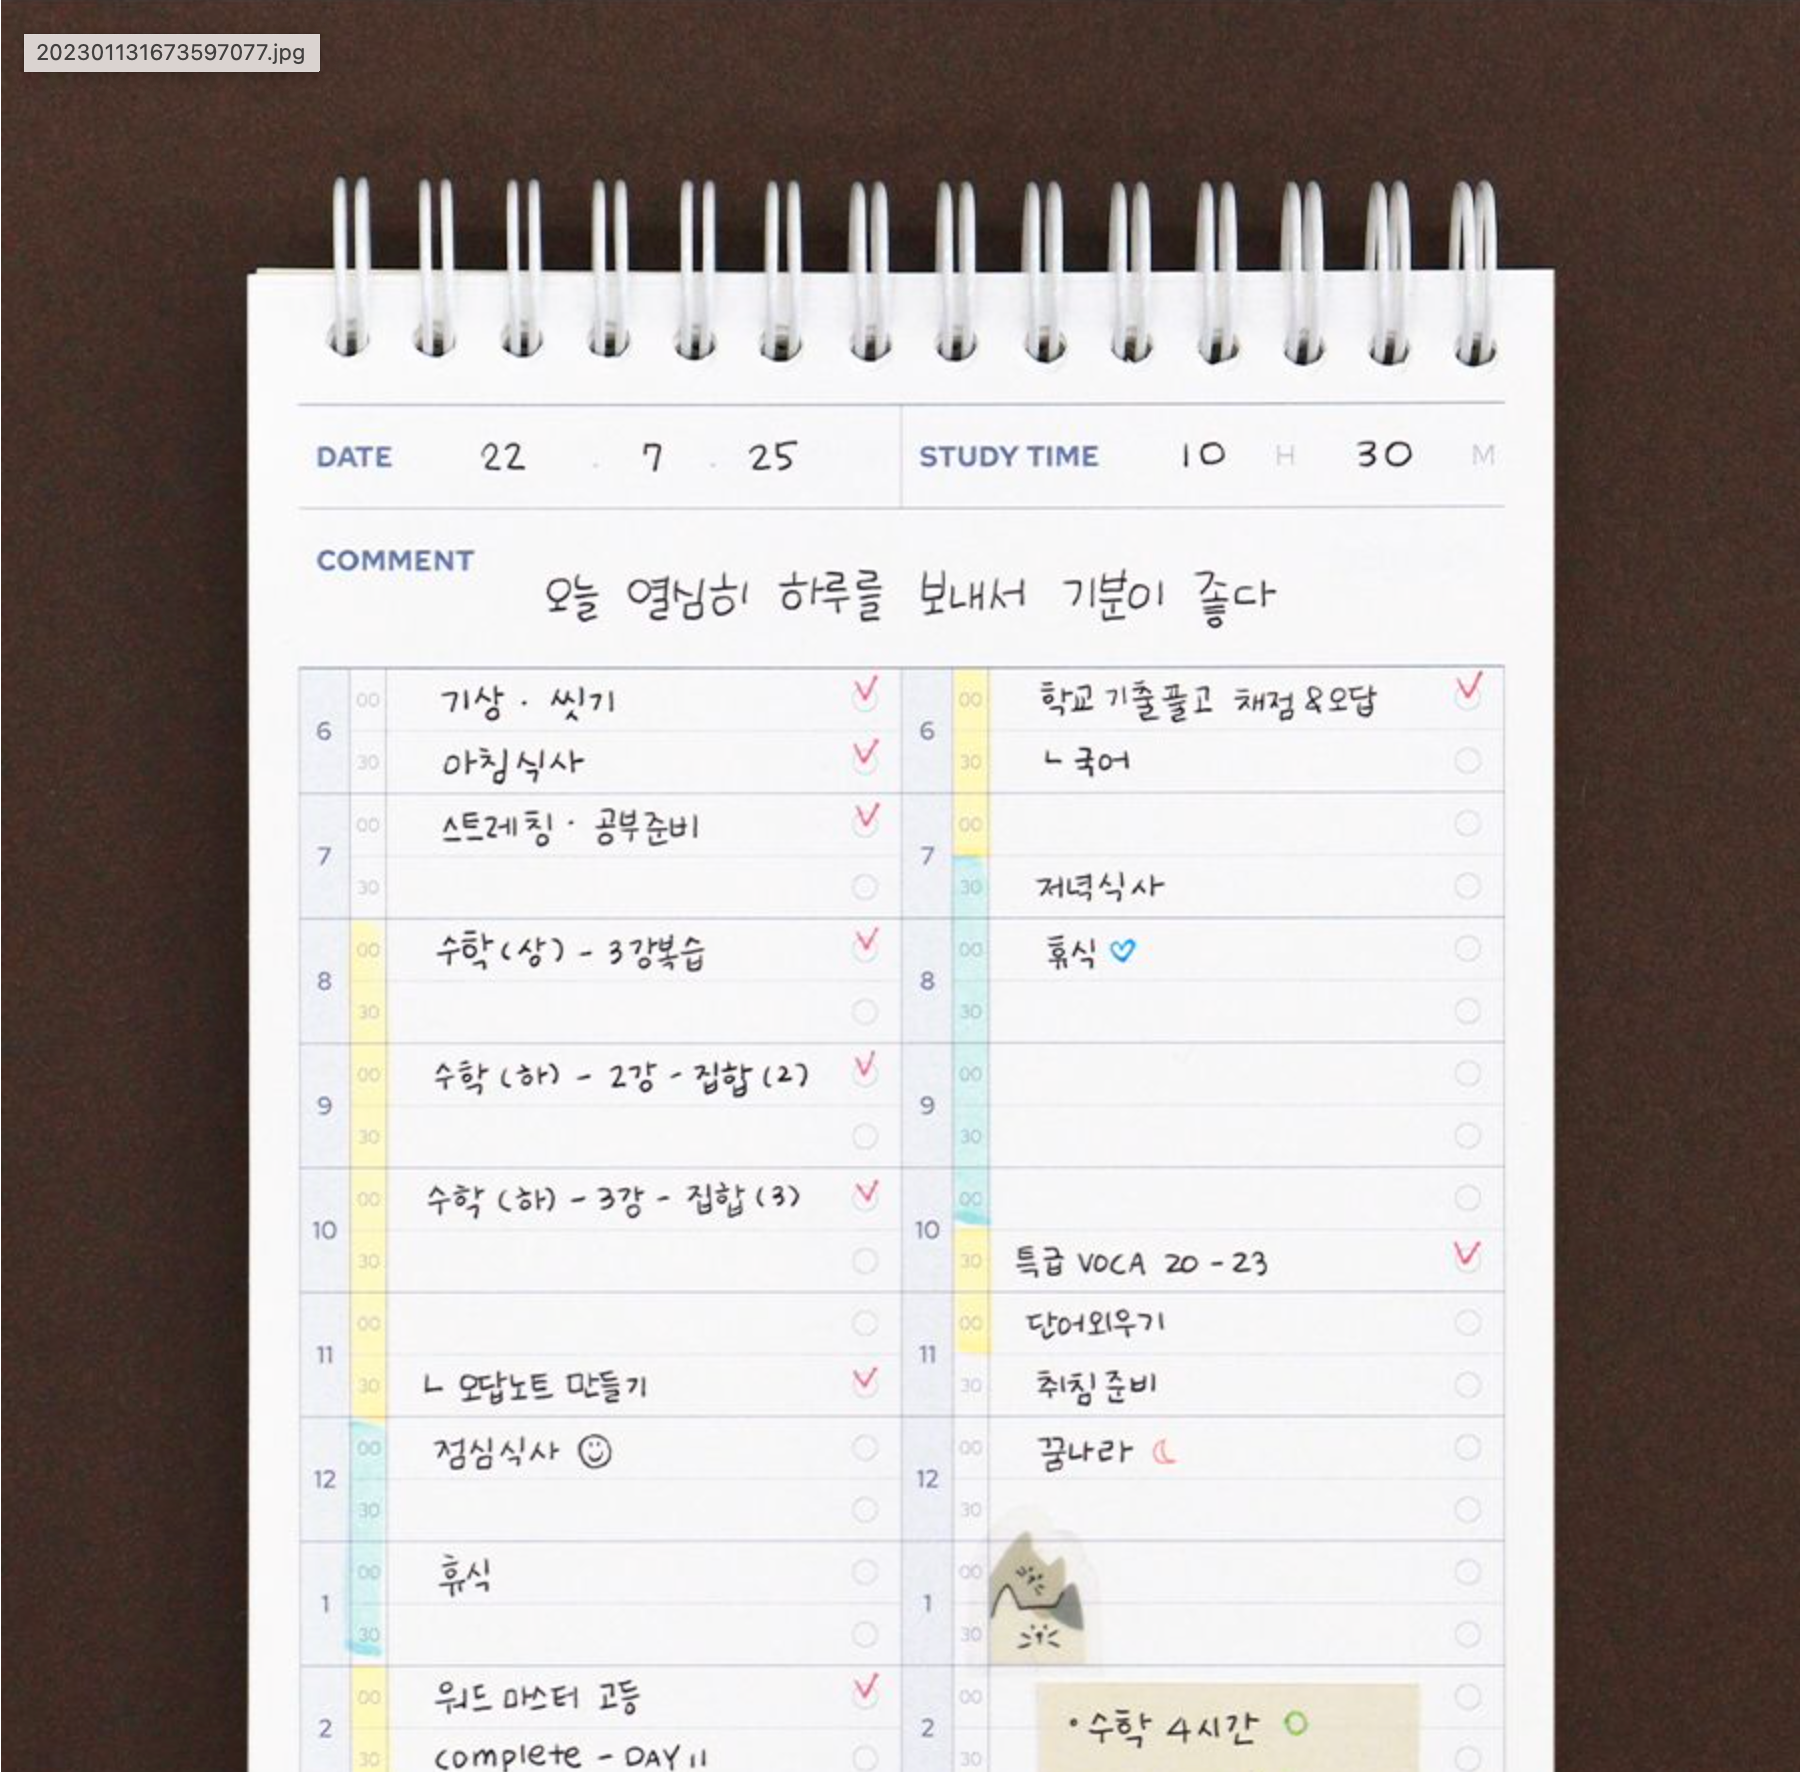 202301131673597077.jpg
DATE 22 . 7 . 25 STUDY TIME 10 H 30 M
COMMENT
오늘 열심히 하루를 보내서 기분이 좋다
6
00 기상 · 씻기
30 아침식사
7
00 스트레칭 · 공부준비
30
8
00 수학(상) - 3강복습
30
9
00 수학(하) - 2강 - 집합(2)
30
10
00 수학(하) - 3강 - 집합(3)
30
11
00
30 ㄴ 오답노트 만들기
12
00 점심식사
30
1
00 휴식
30
2
00 워드 마스터 고등
30 complete - DAY 11
6
00 학교 기출풀고 채점&오답
30 ㄴ국어
7
00
30 저녁식사
8
00 휴식
30
9
00
30
10
00
30 특급 VOCA 20 - 23
11
00 단어외우기
30 취침준비
12
00 꿈나라
30
1
00
30
2
00
30
• 수학 4시간